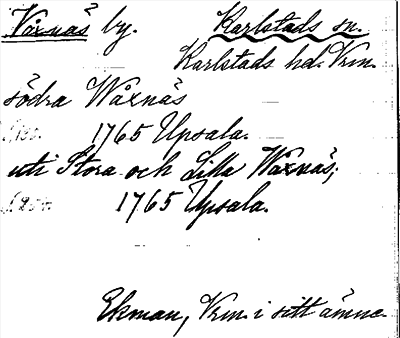 Våxnäs by. Karlstads sn.
Karlstads hd. Vrm.
södra Wåxnäs
s. 120. 1765 Upsala.
uti Stora och Lilla Wåxnäs;
1765 Upsala.
Ekman, Vrm. i sitt ämne.